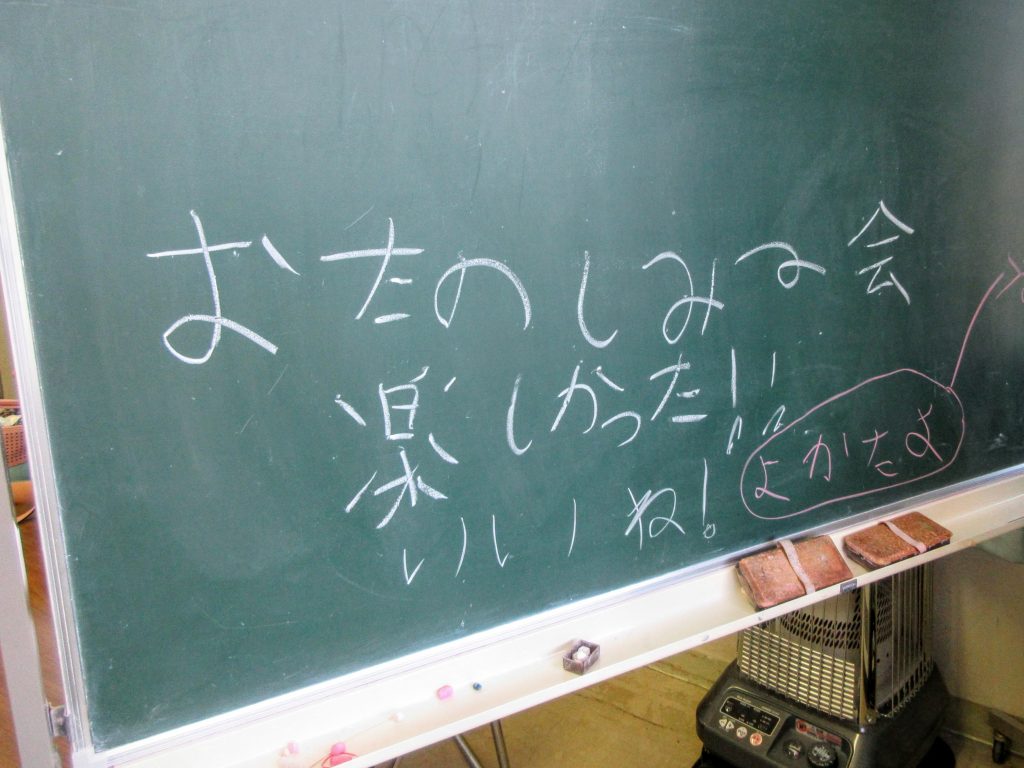 おたのしみ会
楽しかった!!
いいね!
よかたよ